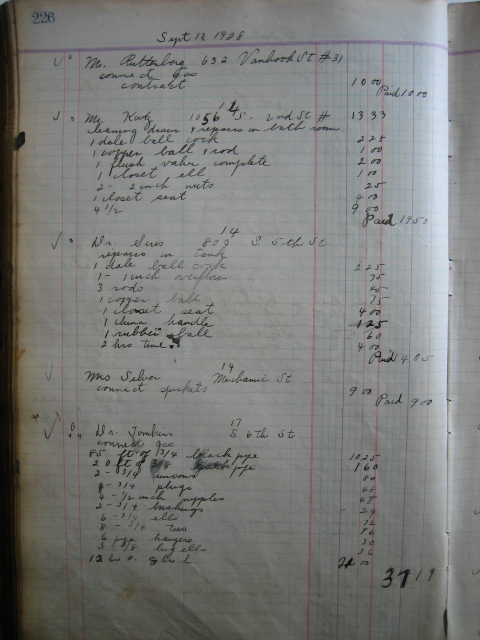 226
Sept 13 1928
Mr. Ruttenberg 632 Vanbook St #31
connect gas
contract 10 00
Paid 10 00
14
Mr Katz 1056 S. 2nd St # 13 33
cleaning drain & repairs in bath room
1 dale ball cock 2 25
1 copper ball & rod 1 00
1 flush valve complete 2 00
1 closet ell 1 00
2 - 2 inch nuts 25
1 closet seat 4 00
4 1/2 9 00
Paid 19 50
14
Dr. Siris 803 S. 5th St
repairs in tank
1 dale ball cock 2 25
1 - 1 inch 75
3 rods 45
1 copper ball 75
1 closet seat 4 00
1 china handle 1 25
1 rubber ball 60
2 hrs time 4 00
Paid
14
Mrs Silver Mechanic St
connect 9 00
Paid 9 00
17
Dr. Tomkins S 6th St
connect gas
85 ft of 3/4 black pipe 10 25
20 ft of 3/8 pipe 1 60
2 - 3/4 unions 80
- 3/4 plugs
4 - 1/2 inch nipples
2 - 3/4 bushings 24
6 - 3/4 ells 72
8 - 3/4 tees
6 pipe hangers 30
3 - 3/8 lug ells 36
12 00
37 19